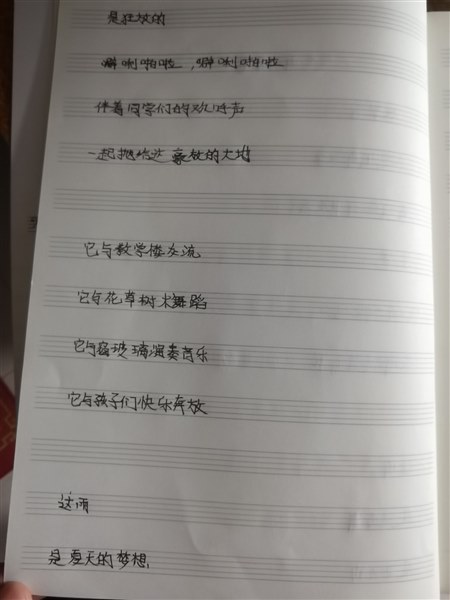 是狂放的
噼唎啪啦,噼唎啪啦
伴着同学们的欢呼声
一起抛给这豪放的大地
它与教学楼交流
它与花草树木舞蹈
它与窗玻璃演奏音乐
它与孩子们快乐奔放
这雨
是夏天的梦想,